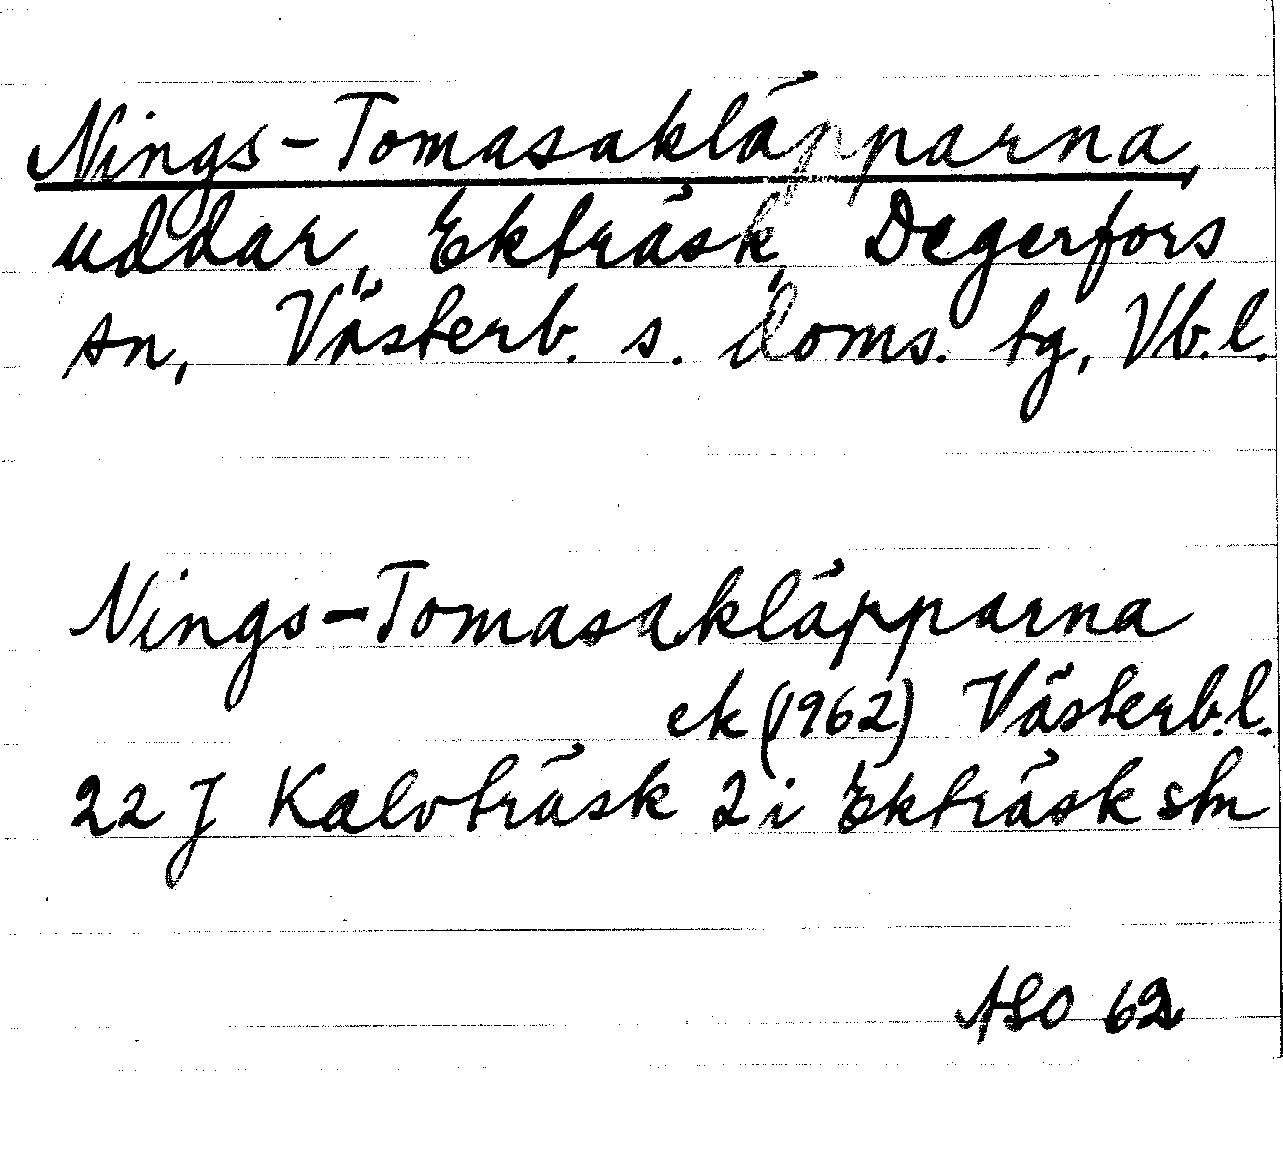 Nings-Tomasakläpparna,
uddar, Ekträsk, Degerfors
sn, Västerb. s. doms. tg, Vb.l.
Nings-Tomasakläpparna
ek (1962) Västerb.l.
22 J Kalvträsk 2 i Ekträsk sln
ASO 62